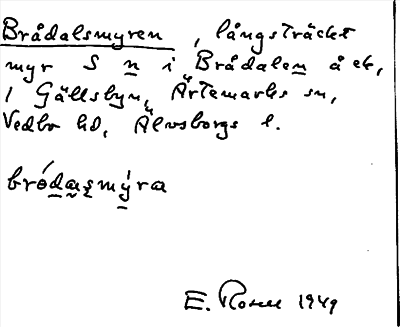 Brådalsmyren, långsträckt
myr S n i Brådalen å ek,
1 Gällsbyn, Ärtemarks sn,
Vedbo hd, Älvsborgs l.
bródasmýra
E. Rosell 1949